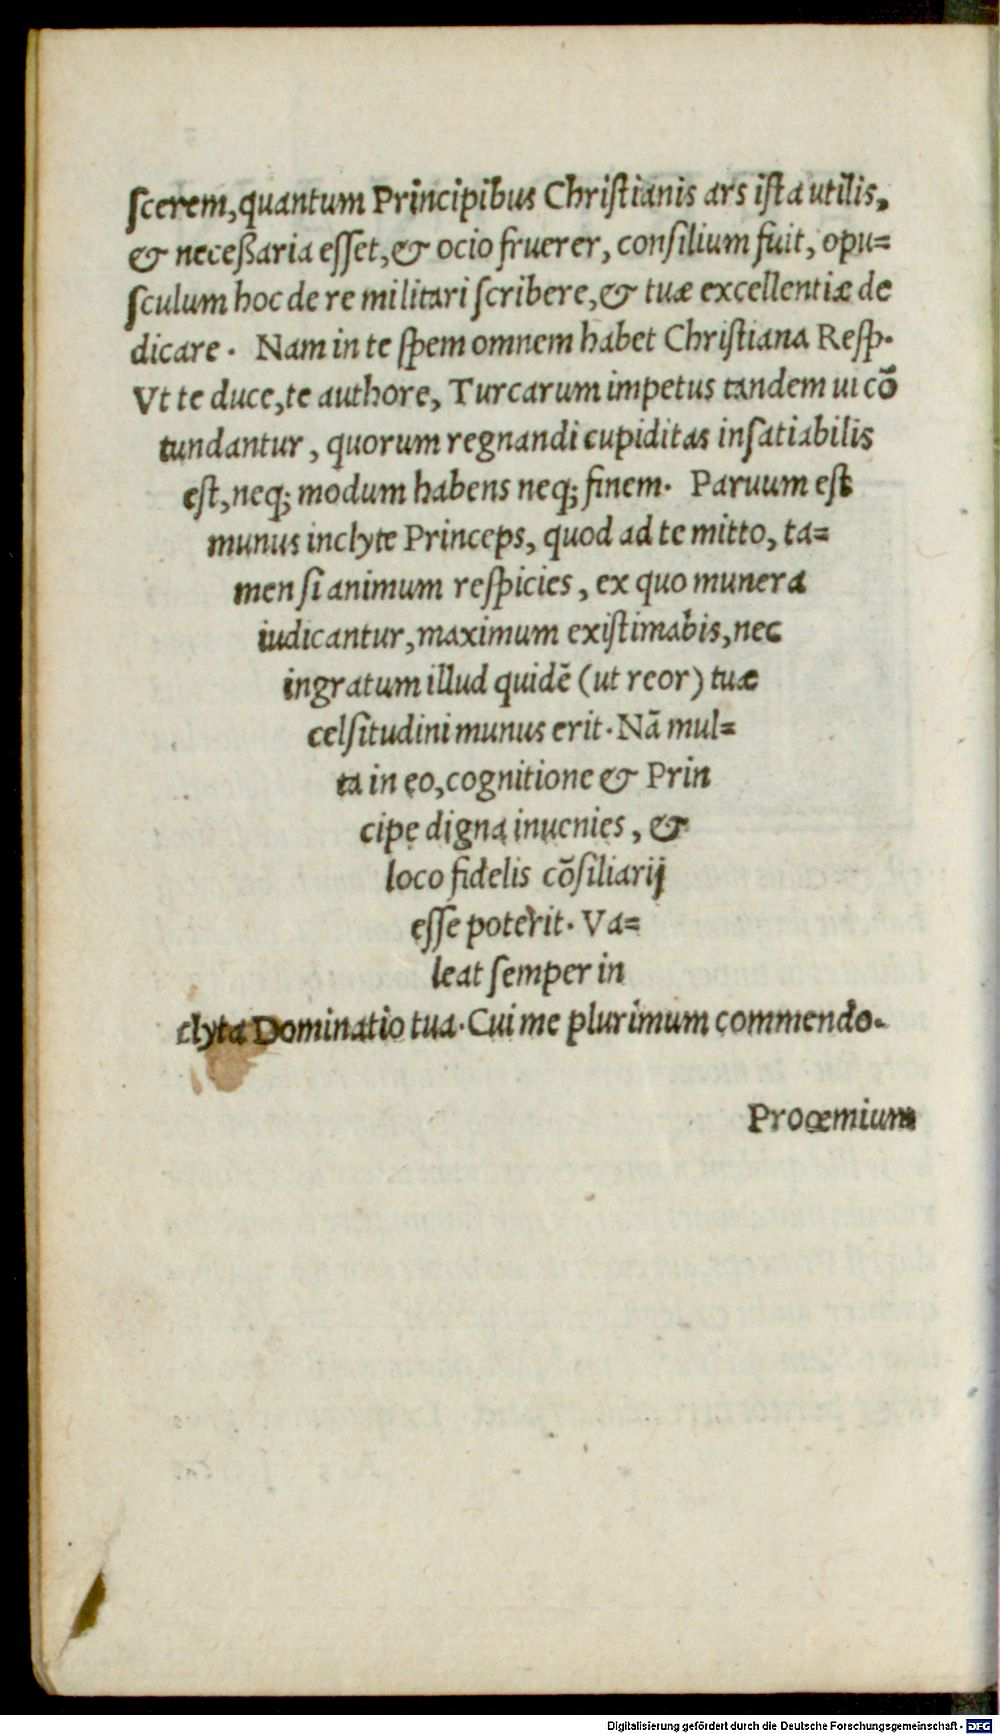 ſcerem, quantum Principibus Chriſtianis ars iſta utilis,
& neceßaria eſſet, & ocio fruerer, conſilium fuit, opu=
ſculum hoc de re militari ſcribere, & tuæ excellentiæ de
dicare. Nam in te ſpem omnem habet Chriſtiana Reſp.
Vt te duce, te authore, Turcarum impetus tandem ui cō
tundantur, quorum regnandi cupiditas inſatiabilis
eſt, neq; modum habens neq; finem. Paruum eſt
munus inclyte Princeps, quod ad te mitto, ta=
men ſi animum reſpicies, ex quo munera
iudicantur, maximum exiſtimabis, nec
ingratum illud quidē (ut reor) tuæ
celſitudini munus erit. Nā mul=
ta in eo, cognitione & Prin
cipe digna inuenies, &
loco fidelis cōſiliarij
eſſe poterit. Va=
leat ſemper in
clyta Dominatio tua. Cui me plurimum commendo.
Proœmium
Digitalisierung gefördert durch die Deutsche Forschungsgemeinschaft - DFG